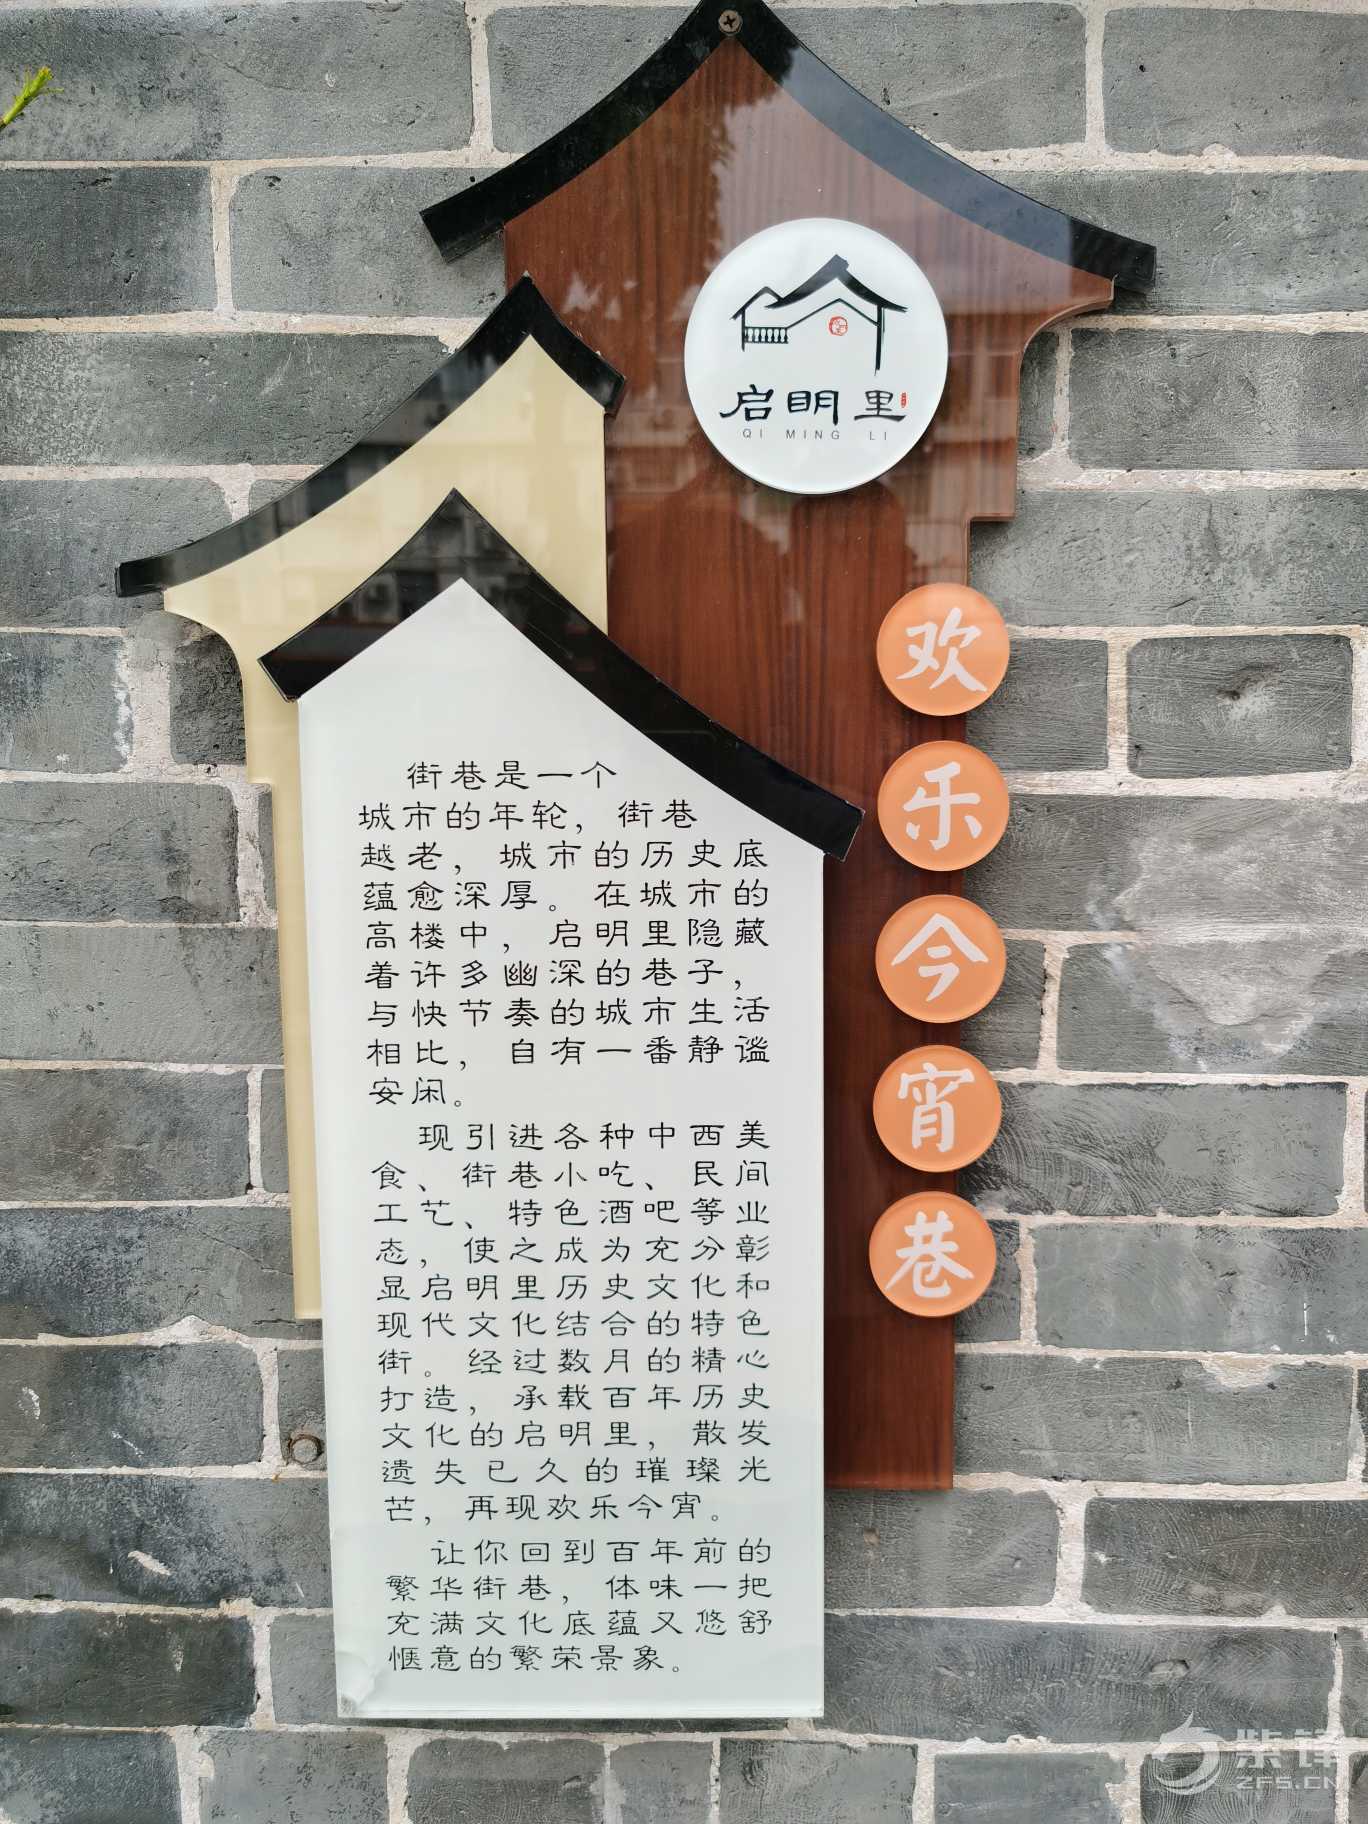 启明里
QI MING LI
欢乐今宵巷
街巷是一个
城市的年轮，街巷
越老，城市的历史底
蕴愈深厚。在城市的
高楼中，启明里隐藏
着许多幽深的巷子，
与快节奏的城市生活
相比，自有一番静谧
安闲。
现引进各种中西美
食、街巷小吃、民间
工艺、特色酒吧等业
态，使之成为充分彰
显启明里历史文化和
现代文化结合的特色
街。经过数月的精心
打造，承载百年历史
文化的启明里，散发
遗失已久的璀璨光
芒，再现欢乐今宵。
让你回到百年前的
繁华街巷，体味一把
充满文化底蕴又悠舒
惬意的繁荣景象。
紫锋
ZFS.CN